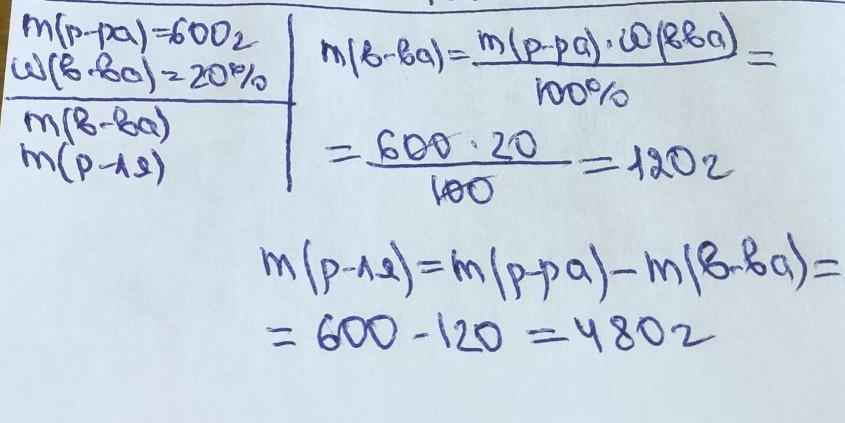 m(р-ра)=600г
ω(в-ва)=20%
m(в-ва)
m(р-ля)
m(в-ва) = m(р-ра)·ω(вва) / 100% =
= 600·20 / 100 = 120г
m(р-ля)=m(р-ра)-m(в-ва)=
= 600-120 = 480г